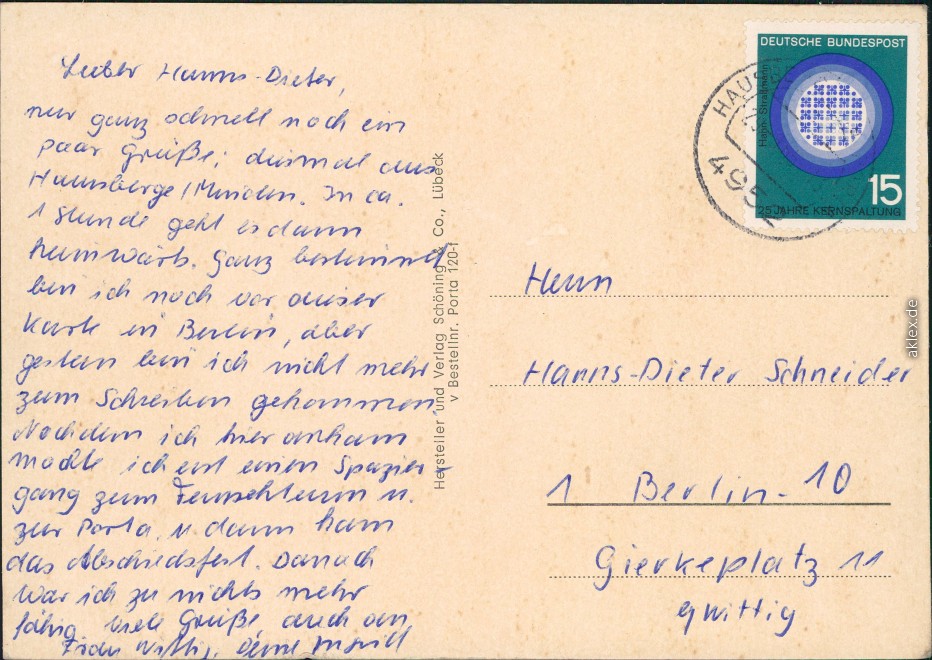 Lieber Hanns-Dieter,
nur ganz schnell noch ein
paar Grüße, diesmal aus
Hausberge/Minden. In ca.
1 Stunde geht es dann
heimwärts. Ganz bestimmt
bin ich noch vor dieser
Karte in Berlin, aber
gestern bin ich nicht mehr
zum Schreiben gekommen.
Nachdem ich hier ankam
machte ich erst einen Spazier-
gang zum Fernsehturm u.
zur Porta, u. dann kam
das Abschiedsfest. Danach
war ich zu nichts mehr
fähig. Viele Grüße auch an
Wittig, deine
Hersteller und Verlag Schöning & Co., Lübeck
v Bestellnr. Porta 120-f
DEUTSCHE BUNDESPOST
Hahn-Straßmann
15
25 JAHRE KERNSPALTUNG
HAUS
495
Herrn
Hanns-Dieter Schneider
1 Berlin-10
Gierkeplatz 11
b/Wittig
aklex.de